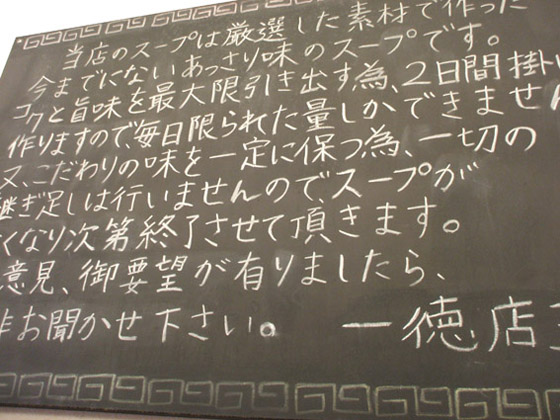 当店のスープは厳選した素材で作った
今までにないあっさり味のスープです。
コクと旨味を最大限引き出す為、2日間掛
作りますので、毎日限られた量しかできません
又、こだわりの味を一定に保つ為、一切の
継ぎ足しは行いませんので、スープが
くなり次第終了させて頂きます。
意見、御要望が有りましたら、
非お聞かせ下さい。 一徳 店